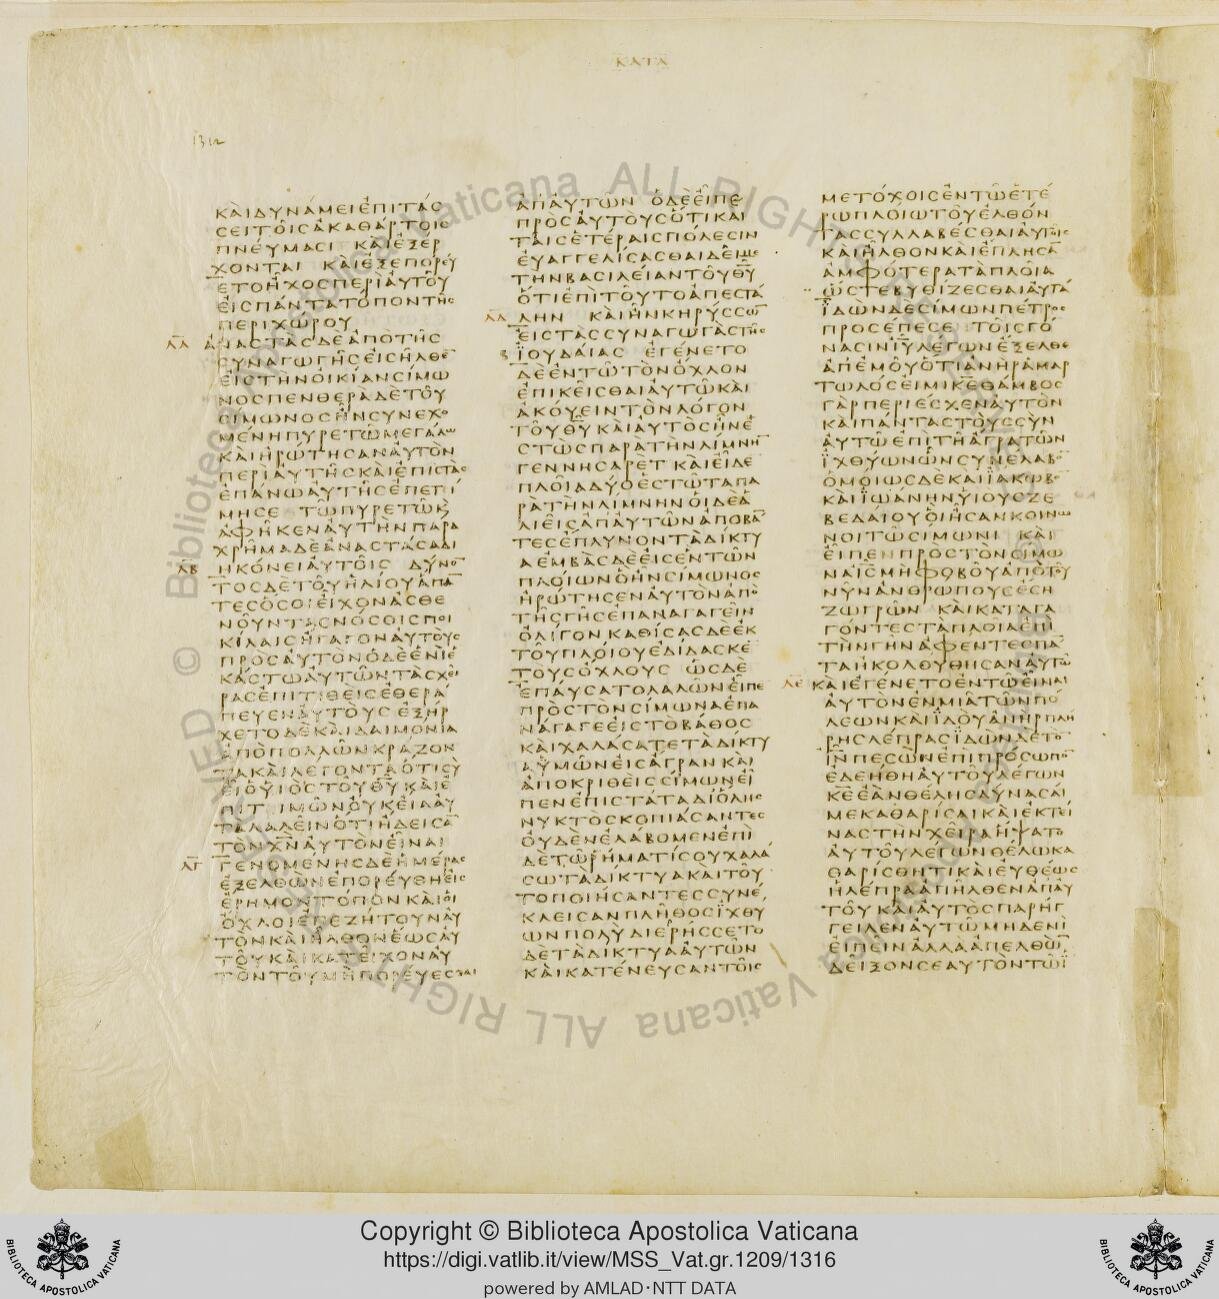 ΚΑΤΑ
1312
ΚΑΙΔΥΝΑΜΕΙΕΠΙΤΑΣ
ΣΕΙΤΟΙΣΑΚΑΘΑΡΤΟΙΣ
ΠΝΕΥΜΑΣΙ ΚΑΙΕΞΕΡ
ΧΟΝΤΑΙ ΚΑΙΕΞΕΠΟΡΕΥ
ΕΤΟΗΧΟΣΠΕΡΙΑΥΤΟΥ
ΕΙΣΠΑΝΤΑΤΟΠΟΝΤΗΣ
ΠΕΡΙΧΩΡΟΥ
ΛΑ ΑΝΑΣΤΑΣΔΕΑΠΟΤΗΣ
ΣΥΝΑΓΩΓΗΣΕΙΣΗΛΘΕ̅
ΕΙΣΤΗΝΟΙΚΙΑΝΣΙΜΩ
ΝΟΣΠΕΝΘΕΡΑΔΕΤΟΥ
ΣΙΜΩΝΟΣΗΝΣΥΝΕΧΟ
ΜΕΝΗΠΥΡΕΤΩΜΕΓΑΛΩ
ΚΑΙΗΡΩΤΗΣΑΝΑΥΤΟΝ
ΠΕΡΙΑΥΤΗΣΚΑΙΕΠΙΣΤΑΣ
ΕΠΑΝΩΑΥΤΗΣΕΠΕΤΙ
ΜΗΣΕ ΤΩΠΥΡΕΤΩΚ
ΑΦΗΚΕΝΑΥΤΗΝΠΑΡΑ
ΧΡΗΜΑΔΕΑΝΑΣΤΑΣΑΔΙ
ΛΒ ΗΚΟΝΕΙΑΥΤΟΙΣ ΔΥΝΟ̅
ΤΟΣΔΕΤΟΥΗΛΙΟΥΑΠΑ̅
ΤΕΣΟΣΟΙΕΙΧΟΝΑΣΘΕ
ΝΟΥΝΤΑΣΝΟΣΟΙΣΠΟΙ
ΚΙΛΑΙΣΗΓΑΓΟΝΑΥΤΟΥΣ
ΠΡΟΣΑΥΤΟΝΟΔΕΕΝΙΕ
ΚΑΣΤΩΑΥΤΩΝΤΑΣΧΕΙ
ΡΑΣΕΠΙΤΙΘΕΙΣΕΘΕΡΑ
ΠΕΥΕΝΑΥΤΟΥΣ ΕΞΗΡ
ΧΕΤΟΔΕΚΑΙΔΑΙΜΟΝΙΑ
ΑΠΟΠΟΛΛΩΝΚΡΑΖΟΝ
ΤΑΚΑΙΛΕΓΟΝΤΑΟΤΙΣΥ
ΕΙΟΥΙΟΣΤΟΥΘ̅Υ̅ΚΑΙΕ
ΠΙΤΙΜΩΝΟΥΚΕΙΑΑΥ
ΤΑΛΑΛΕΙΝΟΤΙΗΔΕΙΣΑ̅
ΤΟΝΧ̅Ν̅ΑΥΤΟΝΕΙΝΑΙ
ΛΓ ΓΕΝΟΜΕΝΗΣΔΕΗΜΕΡΑΣ
ΕΞΕΛΘΩΝΕΠΟΡΕΥΘΗΕΙΣ
ΕΡΗΜΟΝΤΟΠΟΝΚΑΙΟΙ
ΟΧΛΟΙΕΠΕΖΗΤΟΥΝΑΥ
ΤΟΝΚΑΙΗΛΘΟΝΕΩΣΑΥ
ΤΟΥΚΑΙΚΑΤΕΙΧΟΝΑΥ
ΤΟΝΤΟΥΜΗΠΟΡΕΥΕΣΘΑΙ
ΑΠΑΥΤΩΝ ΟΔΕΕΙΠΕ
ΠΡΟΣΑΥΤΟΥΣΟΤΙΚΑΙ
ΤΑΙΣΕΤΕΡΑΙΣΠΟΛΕΣΙΝ
ΕΥΑΓΓΕΛΙΣΑΣΘΑΙΔΕΙΜΕ
ΤΗΝΒΑΣΙΛΕΙΑΝΤΟΥΘ̅Υ̅
ΟΤΙΕΠΙΤΟΥΤΟΑΠΕΣΤΑ
ΛΔ ΛΗΝ ΚΑΙΗΝΚΗΡΥΣΣΩ̅
ΕΙΣΤΑΣΣΥΝΑΓΩΓΑΣΤΗΣ
ΪΟΥΔΑΙΑΣ ΕΓΕΝΕΤΟ
ΔΕΕΝΤΩΤΟΝΟΧΛΟΝ
ΕΠΙΚΕΙΣΘΑΙΑΥΤΩΚΑΙ
ΑΚΟΥΕΙΝΤΟΝΛΟΓΟΝ
ΤΟΥΘ̅Υ̅ΚΑΙΑΥΤΟΣΗΝΕ
ΣΤΩΣΠΑΡΑΤΗΝΛΙΜΝΗ̅
ΓΕΝΝΗΣΑΡΕΤ ΚΑΙΕΙΔΕ
ΠΛΟΙΑΔΥΟΕΣΤΩΤΑΠΑ
ΡΑΤΗΝΛΙΜΝΗΝΟΙΔΕΑ
ΛΙΕΙΣΑΠΑΥΤΩΝΑΠΟΒΑ̅
ΤΕΣΕΠΛΥΝΟΝΤΑΔΙΚΤΥ
ΑΕΜΒΑΣΔΕΕΙΣΕΝΤΩΝ
ΠΛΟΙΩΝΟΗΝΣΙΜΩΝΟΣ
ΗΡΩΤΗΣΕΝΑΥΤΟΝΑΠΟ
ΤΗΣΓΗΣΕΠΑΝΑΓΑΓΕΙΝ
ΟΛΙΓΟΝΚΑΘΙΣΑΣΔΕΕΚ
ΤΟΥΠΛΟΙΟΥΕΔΙΔΑΣΚΕ
ΤΟΥΣΟΧΛΟΥΣ ΩΣΔΕ
ΕΠΑΥΣΑΤΟΛΑΛΩΝΕΙΠΕ
ΠΡΟΣΤΟΝΣΙΜΩΝΑΕΠΑ
ΝΑΓΑΓΕΕΙΣΤΟΒΑΘΟΣ
ΚΑΙΧΑΛΑΣΑΤΕΤΑΔΙΚΤΥ
ΑΥΜΩΝΕΙΣΑΓΡΑΝ ΚΑΙ
ΑΠΟΚΡΙΘΕΙΣΣΙΜΩΝΕΙ
ΠΕΝΕΠΙΣΤΑΤΑΔΙΟΛΗΣ
ΝΥΚΤΟΣΚΟΠΙΑΣΑΝΤΕΣ
ΟΥΔΕΝΕΛΑΒΟΜΕΝΕΠΙ
ΔΕΤΩΡΗΜΑΤΙΣΟΥΧΑΛΑ
ΣΩΤΑΔΙΚΤΥΑΚΑΙΤΟΥ
ΤΟΠΟΙΗΣΑΝΤΕΣΣΥΝΕ
ΚΛΕΙΣΑΝΠΛΗΘΟΣΪΧΘΥ
ΩΝΠΟΛΥΔΙΕΡΗΣΣΕΤΟ
ΔΕΤΑΔΙΚΤΥΑΑΥΤΩΝ
ΚΑΙΚΑΤΕΝΕΥΣΑΝΤΟΙΣ
ΜΕΤΟΧΟΙΣΕΝΤΩΕΤΕ
ΡΩΠΛΟΙΩΤΟΥΕΛΘΟΝ
ΤΑΣΣΥΛΛΑΒΕΣΘΑΙΑΥΤΟΙΣ
ΚΑΙΗΛΘΟΝΚΑΙΕΠΛΗΣΑ̅
ΑΜΦΟΤΕΡΑΤΑΠΛΟΙΑ
ΩΣΤΕΒΥΘΙΖΕΣΘΑΙΑΥΤΑ
ΪΔΩΝΔΕΣΙΜΩΝΠΕΤΡΟΣ
ΠΡΟΣΕΠΕΣΕ ΤΟΙΣΓΟ
ΝΑΣΙΝΙ̅Υ̅ΛΕΓΩΝΕΞΕΛΘΕ
ΑΠΕΜΟΥΟΤΙΑΝΗΡΑΜΑΡ
ΤΩΛΟΣΕΙΜΙΚ̅Ε̅ΘΑΜΒΟΣ
ΓΑΡΠΕΡΙΕΣΧΕΝΑΥΤΟΝ
ΚΑΙΠΑΝΤΑΣΤΟΥΣΣΥΝ
ΑΥΤΩΕΠΙΤΗΑΓΡΑΤΩΝ
ΪΧΘΥΩΝΩΝΣΥΝΕΛΑΒΟ̅
ΟΜΟΙΩΣΔΕΚΑΙΪΑΚΩΒΟ̅
ΚΑΙΪΩΑΝΗΝΥΙΟΥΣΖΕ
ΒΕΔΑΙΟΥΟΙΗΣΑΝΚΟΙΝΩ
ΝΟΙΤΩΣΙΜΩΝΙ ΚΑΙ
ΕΙΠΕΝΠΡΟΣΤΟΝΣΙΜΩ
ΝΑΙ̅Σ̅ΜΗΦΟΒΟΥΑΠΟΤΟΥ
ΝΥΝΑΝΘΡΩΠΟΥΣΕΣΗ
ΖΩΓΡΩΝ ΚΑΙΚΑΤΑΓΑ
ΓΟΝΤΕΣΤΑΠΛΟΙΑΕΠΙ
ΤΗΝΓΗΝΑΦΕΝΤΕΣΠΑ̅
ΤΑΗΚΟΛΟΥΘΗΣΑΝΑΥΤΩ
ΛΕ ΚΑΙΕΓΕΝΕΤΟΕΝΤΩΕΙΝΑΙ
ΑΥΤΟΝΕΝΜΙΑΤΩΝΠΟ
ΛΕΩΝΚΑΙΪΔΟΥΑΝΗΡΠΛΗ
ΡΗΣΛΕΠΡΑΣΪΔΩΝΔΕΤΟ̅
Ι̅Ν̅ΠΕΣΩΝΕΠΙΠΡΟΣΩΠΟ̅
ΕΔΕΗΘΗΑΥΤΟΥΛΕΓΩΝ
Κ̅Ε̅ΕΑΝΘΕΛΗΣΔΥΝΑΣΑΙ
ΜΕΚΑΘΑΡΙΣΑΙΚΑΙΕΚΤΕΙ
ΝΑΣΤΗΝΧΕΙΡΑΗΨΑΤΟ
ΑΥΤΟΥΛΕΓΩΝΘΕΛΩΚΑ
ΘΑΡΙΣΘΗΤΙΚΑΙΕΥΘΕΩΣ
ΗΛΕΠΡΑΑΠΗΛΘΕΝΑΠΑΥ
ΤΟΥ ΚΑΙΑΥΤΟΣΠΑΡΗΓ
ΓΕΙΛΕΝΑΥΤΩΜΗΔΕΝΙ
ΕΙΠΕΙΝΑΛΛΑΑΠΕΛΘΩ̅
ΔΕΙΞΟΝΣΕΑΥΤΟΝΤΩΪ
© Biblioteca Apostolica Vaticana ALL RIGHTS RESERVED
Copyright © Biblioteca Apostolica Vaticana
https://digi.vatlib.it/view/MSS_Vat.gr.1209/1316
powered by AMLAD·NTT DATA
BIBLIOTECA APOSTOLICA VATICANA
BIBLIOTECA APOSTOLICA VATICANA